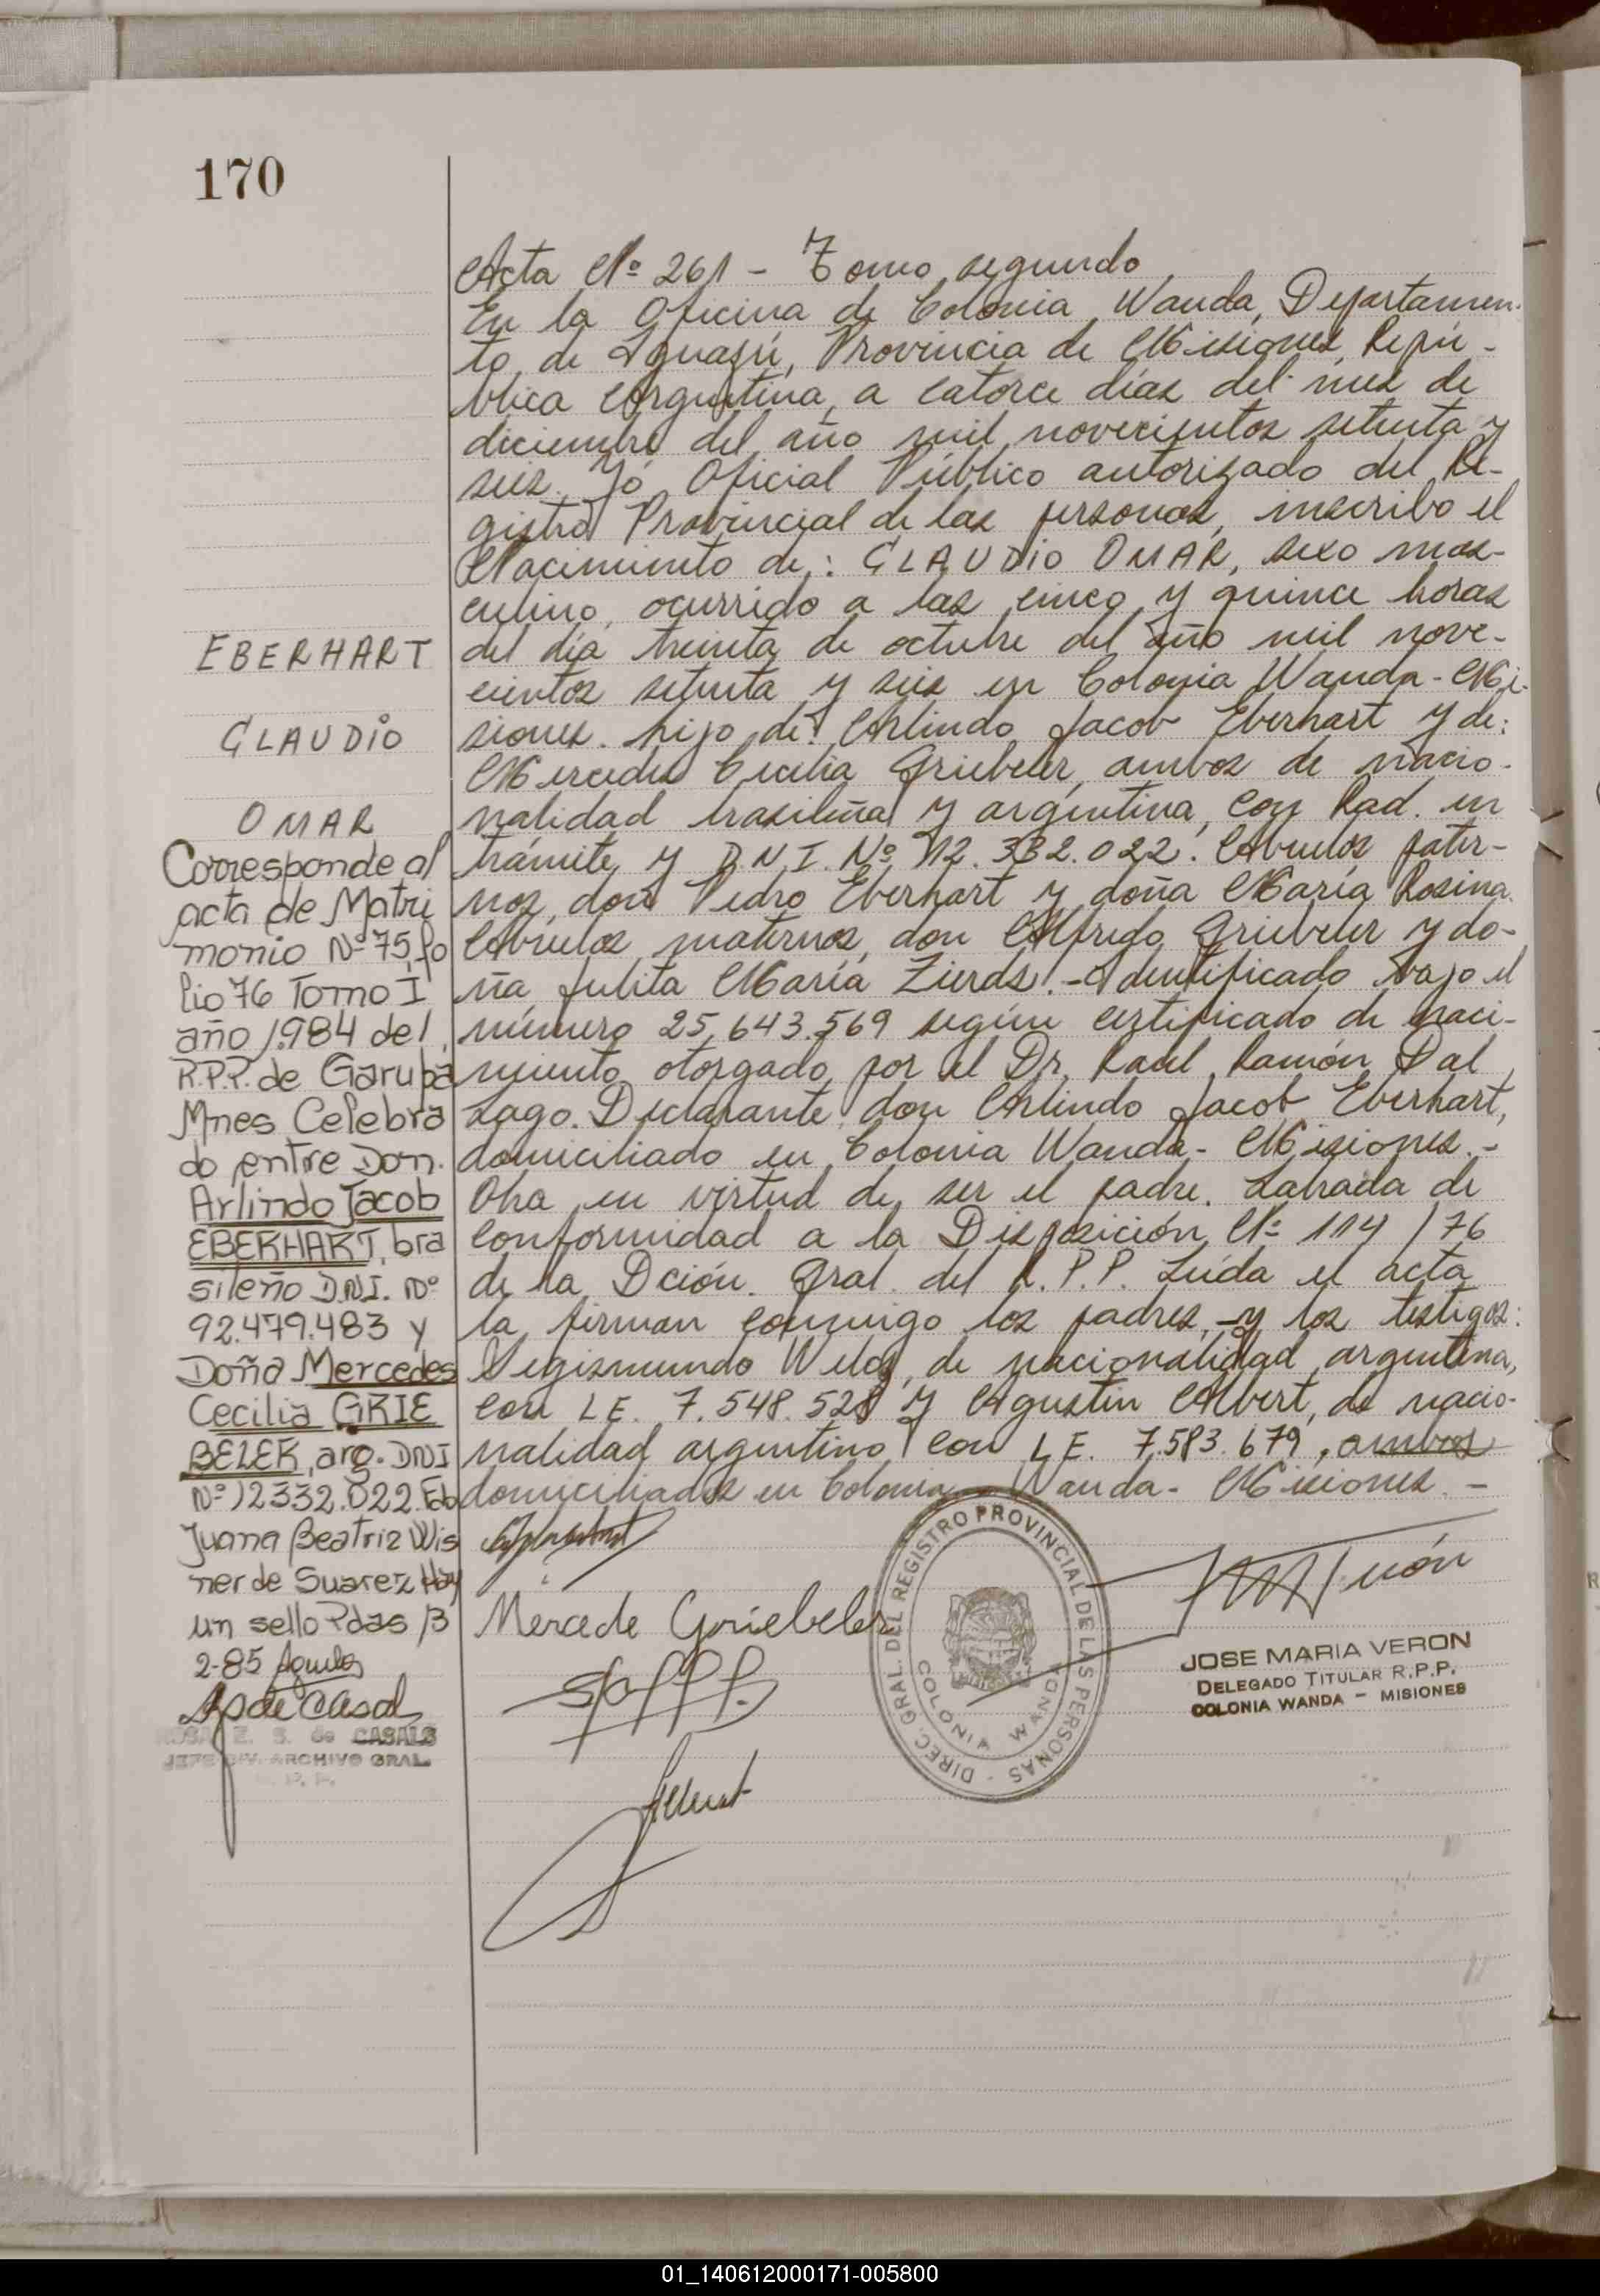 170
Acta Nº 261 - Tomo segundo
En la Oficina de Colonia Wanda, Departamen-
to de Iguazú, Provincia de Misiones, Repú-
blica Argentina, a catorce días del mes de
diciembre del año mil novecientos setenta y
seis. Yó Oficial Público autorizado del Re-
gistro Provincial de las personas, inscribo el
Nacimiento de: CLAUDIO OMAR, sexo mas-
culino, ocurrido a las cinco y quince horas
del día treinta de octubre del año mil nove-
cientos setenta y seis en Colonia Wanda - Mi-
siones. hijo de: Arlindo Jacob Eberhart y de:
Mercedes Cecilia Griebeler, ambos de nacio-
nalidad brasileña y argentina, con Rad. en
trámite y D.N.I. Nº 12.332.022. Abuelos pater-
nos, don Pedro Eberhart y doña María Rosina.
Abuelos maternos, don Alfredo Griebeler y do-
ña Julita María Zierds.- Identificado bajo el
número 25.643.569 según certificado de naci-
miento otorgado por el Dr. Raul Ramón Dal
Lago. Declarante, don Arlindo Jacob Eberhart,
domiciliado en Colonia Wanda - Misiones.-
Obra en virtud de ser el padre. Labrada de
conformidad a la Disposición Nº 114/76
de la Dción. Gral. del R.P.P. Leída el acta
la firman conmigo los padres, y los testigos:
Segismundo Welos, de nacionalidad argentina,
con L.E. 7.548.528 y Agustin Albert, de nacio-
nalidad argentino con L.E. 7.583.679, ambos
domiciliados en Colonia Wanda - Misiones. -
EBERHART
CLAUDIO
OMAR
Corresponde al
acta de Matri
monio Nº 75, fo
lio 76 Tomo I
año 1.984 del
R.P.P. de Garupá
Mnes Celebra
do entre Don.
Arlindo Jacob
EBERHART, bra
sileño D.N.I. Nº
92.479.483 y
Doña Mercedes
Cecilia GRIE
BELER, arg. DNI
Nº 12332.022. Fdo
Juana Beatriz Wis
ner de Suarez Hay
un sello Pdas 13
2-85
de Casals
E. S. de CASALS
JEFE DIV. ARCHIVO GRAL.
R. P. P.
Mercede Griebeler
Albert
DIREC. GRAL. DEL REGISTRO PROVINCIAL DE LAS PERSONAS -
COLONIA WANDA
JOSE MARIA VERON
DELEGADO TITULAR R.P.P.
COLONIA WANDA - MISIONES
01_140612000171-005800